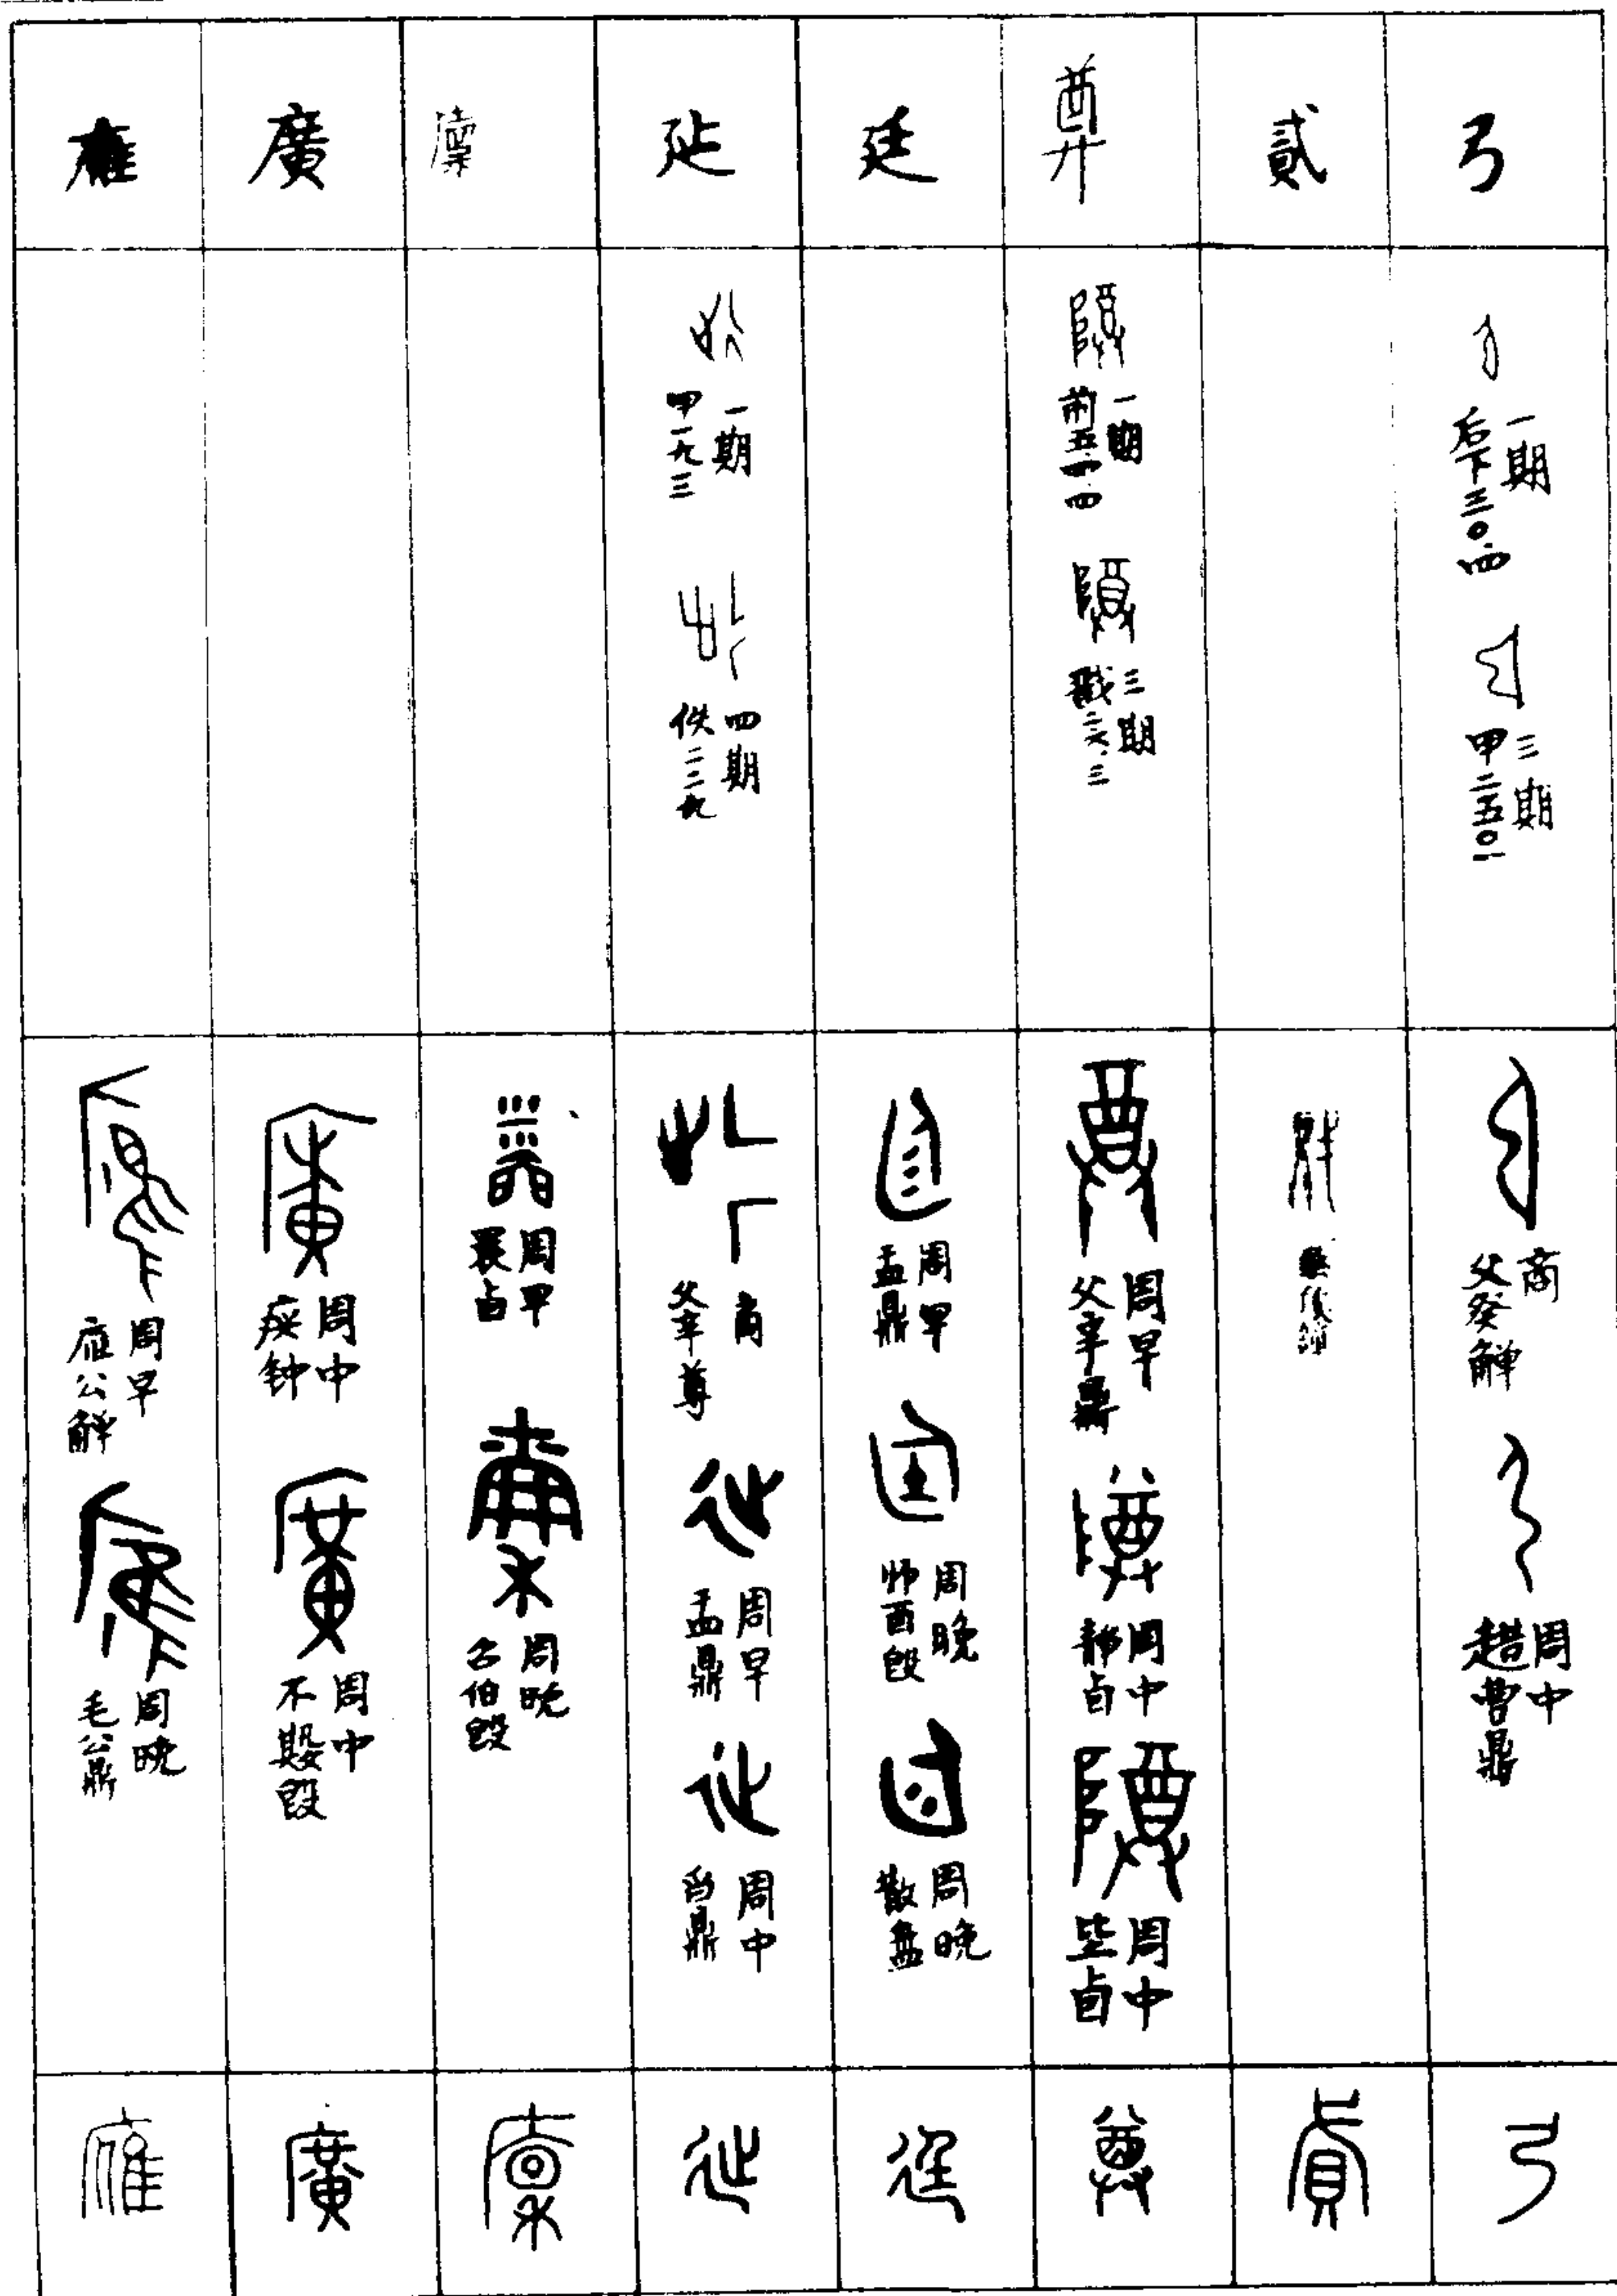 弓
一期
后下三〇.四
三期
甲二五〇一
商
父癸觶
周中
趞曹鼎
弓
貳
貳
尊
一期
前五.四.四
三期
周早
父辛鼎
周中
靜卣
周中
尊
廷
周早
盂鼎
周晚
师酉𣪘
周晚
散盤
廷
延
一期
甲一九三
四期
佚二二九
商
父辛尊
周早
盂鼎
周中
曶鼎
延
廩
周早
農卣
周晚
召伯𣪘
廩
廣
周中
𤼈钟
周中
不𡢁𣪘
廣
雁
周早
应公觶
周晚
毛公鼎
雁